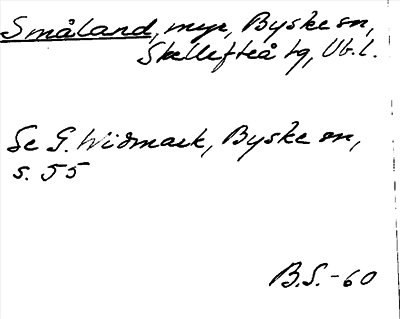 Småland, myr, Byske sn,
Skellefteå tg, Vb.l.
Se G. Widmark, Byske sn,
s. 55
B.S.-60